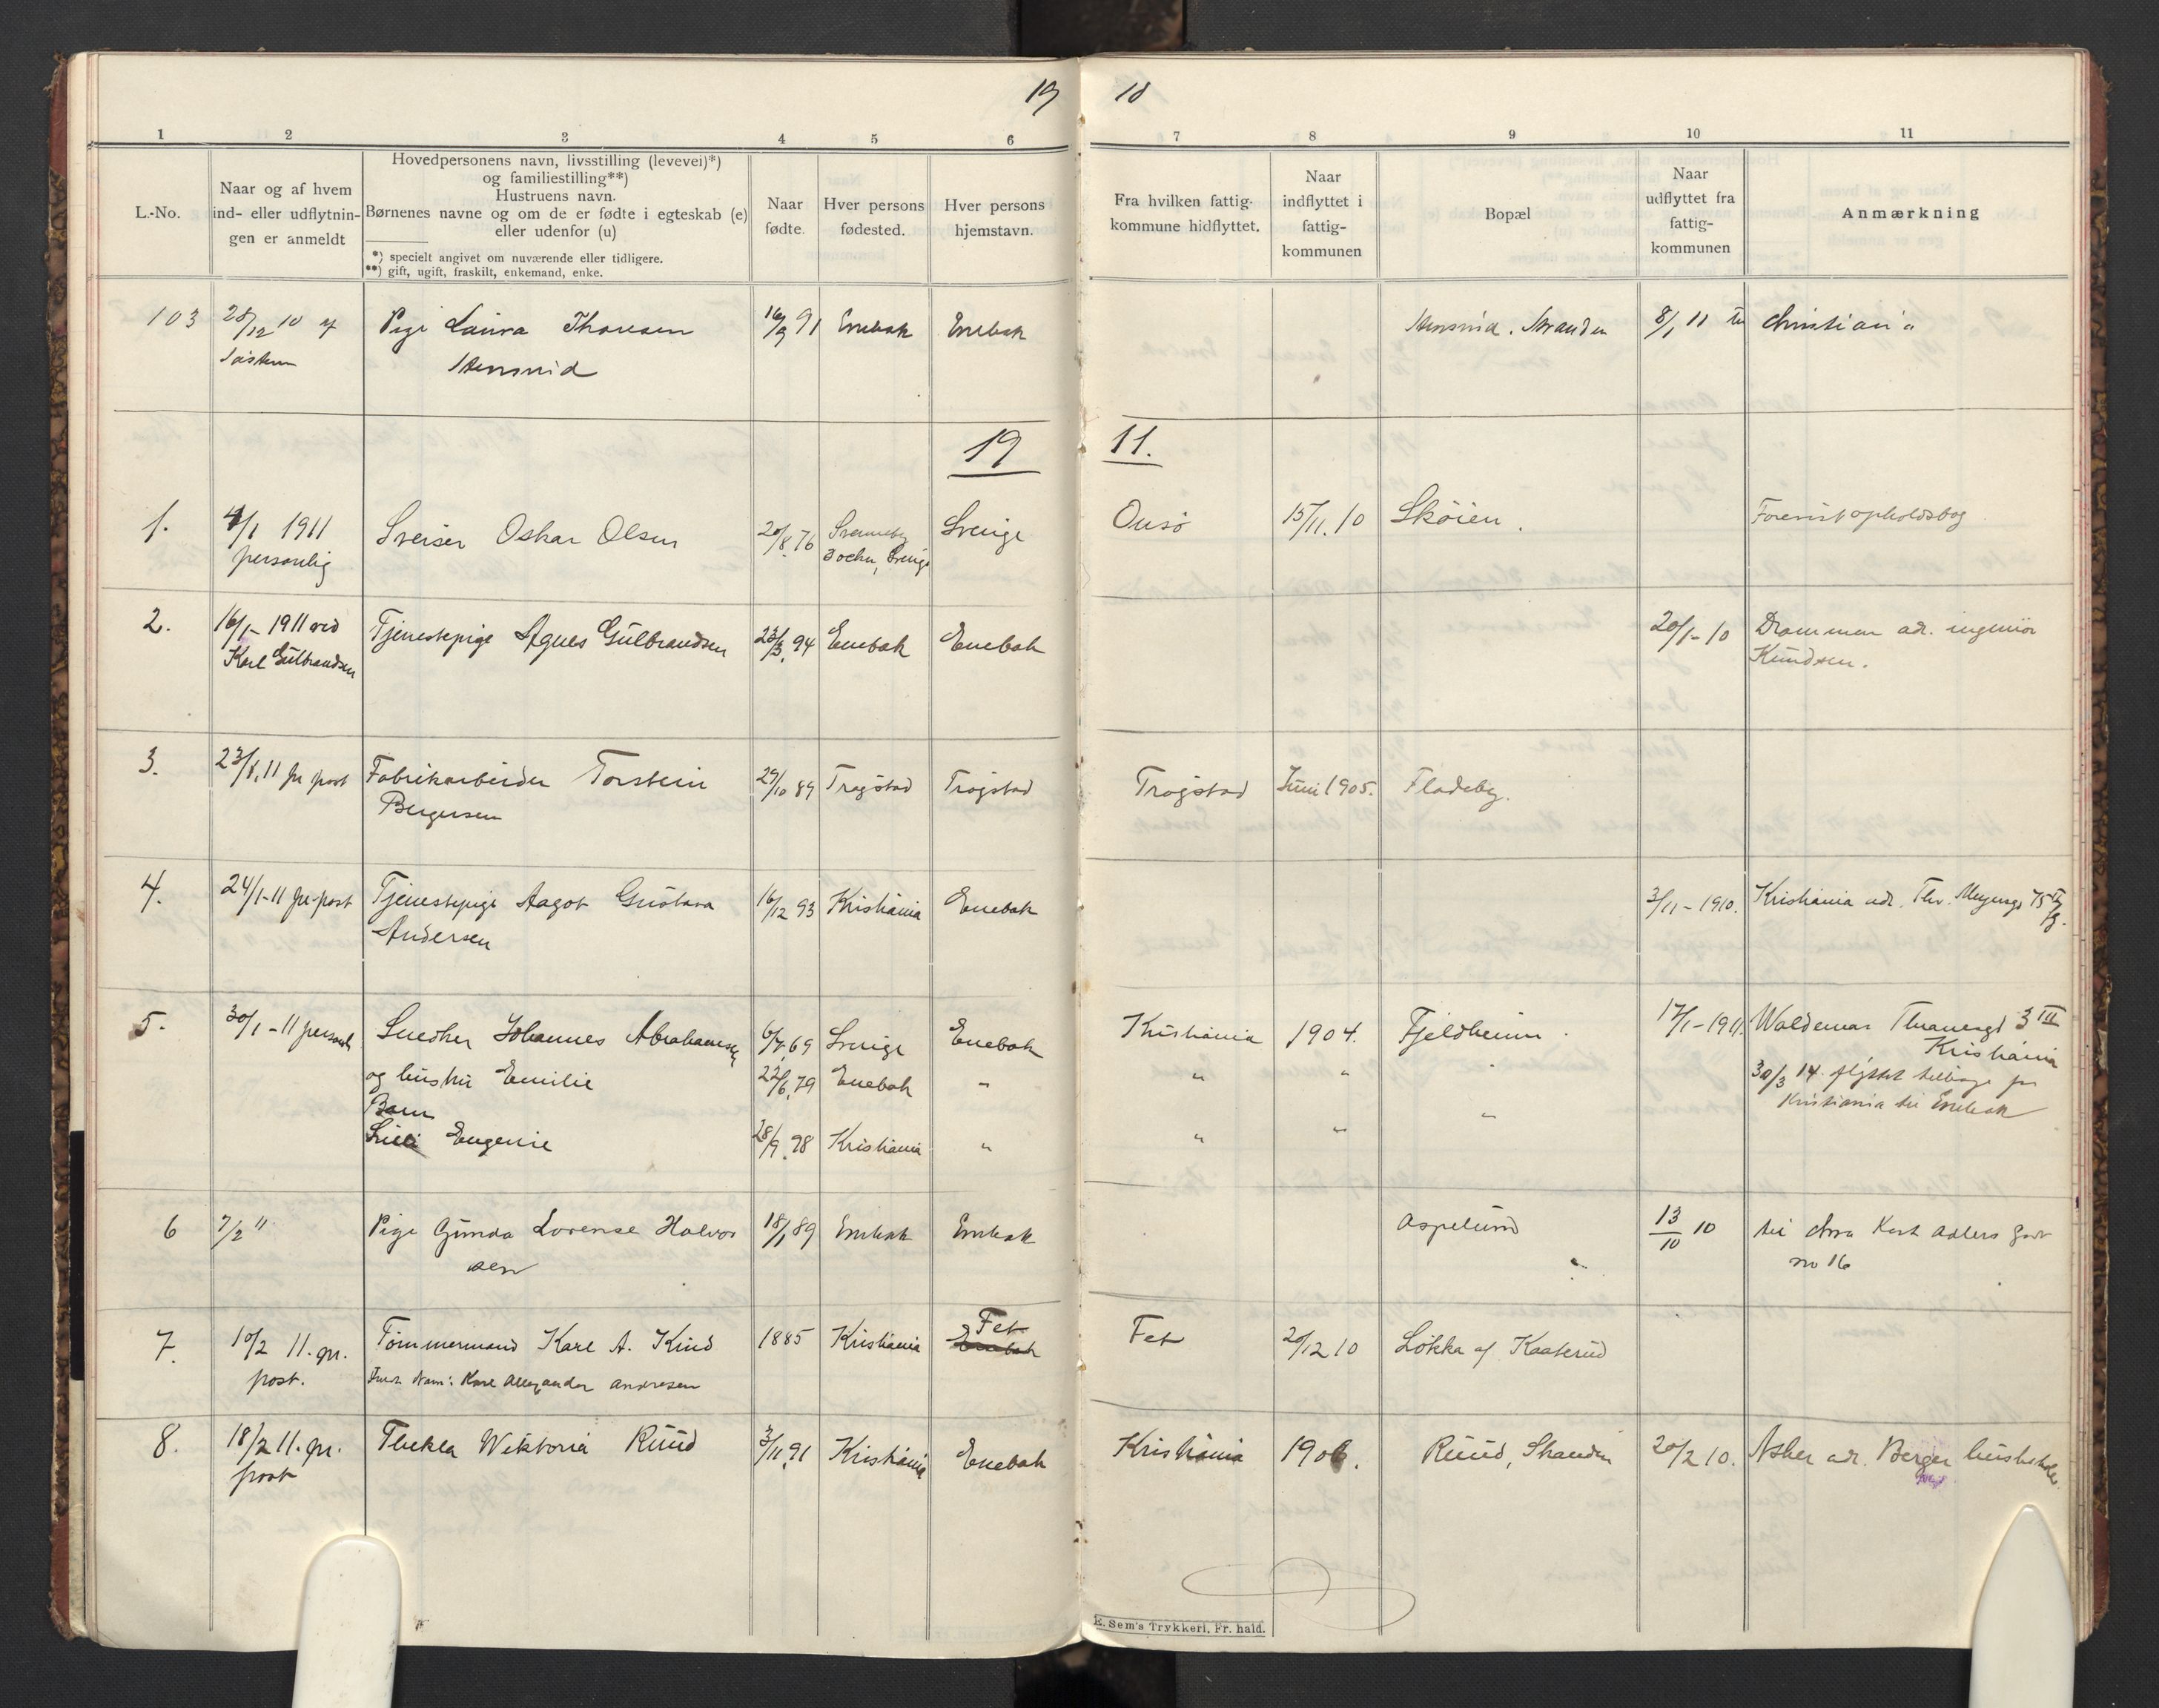 19 10
1 2 3 4 5 6 7 8 9 10 11
L.-No.
Naar og af hvem
ind- eller udflytnin-
gen er anmeldt
Hovedpersonens navn, livsstilling (levevei)*)
og familiestilling**)
Hustruens navn.
Børnenes navne og om de er fødte i egteskab (e)
eller udenfor (u)
*) specielt angivet om nuværende eller tidligere.
**) gift, ugift, fraskilt, enkemand, enke.
Naar
fødte.
Hver persons
fødested.
Hver persons
hjemstavn.
Fra hvilken fattig-
kommune hidflyttet.
Naar
indflyttet i
fattig-
kommunen
Bopæl
Naar
udflyttet fra
fattig-
kommunen
Anmærkning
103 28/12 10 af Pige Laura Thoresen 16/9 91 Enebak Enebak Stensrud. Stranden 8/1 11 til Christiania
Søsteren Stensrud
19 11.
1. 4/1 1911 Sveiser Oskar Olsen 20/8.76 Sverige Onsö 15/11.10 Skøien. Forevist opholdsbog
personlig Sverige
2. 16/1- 1911 ved Tjenestepige Agnes Gulbrandsen 23/3.94 Enebak Enebak 20/1-10 Drammen adr. ingeniør
Karl Gulbrandsen Knudsen.
3. 23/1.11 pr post Fabrikarbeider Torstein 29/10 89 Trøgstad Trøgstad Trøgstad Juni 1905. Fladeby.
Bergersen
4. 24/1-11 pr post Tjenestepige Aagot Gustava 16/12 93 Kristiania Enebak 3/11-1910. Kristiania adr. Thv. Meyersgd 75
Andersen
5. 30/1-11 personl. Snedker Johannes Abrahamsen 6/7.69 Sverige Enebak Kristiania 1904. Fjeldheim. 17/1-1911. Waldemar Thranesgd 3 III
Kristiania
og hustru Emilie 22/6.79 Enebak " " " 30/3 14 flyttet tilbage fra
Barn Kristiania til Enebak
Eugenie 28/9.98 Kristiania " " " "
6 7/2 11 Pige Gunda Lovense Halvor 18/1 89 Enebak Enebak Aspelund 13/10 10 til Chra Kort Adlers gade
sen no 16
7. 10/2 11. pr. Tømmermand Karl A. Kind 1885 Kristiania Fet Enebak Fet 20/12 10 Løkka af Kaaterud
post. Navn: Karl Allexander Andresen
8. 18/2 11. pr. Thekla Wiktoria Ruud 3/11.91 Kristiania Enebak Kristiania 1906. Ruud, Stranden 20/2 10. Asker adr. Berger husbestyrer.
post
E. Sem's Trykkeri, Fr. hald.